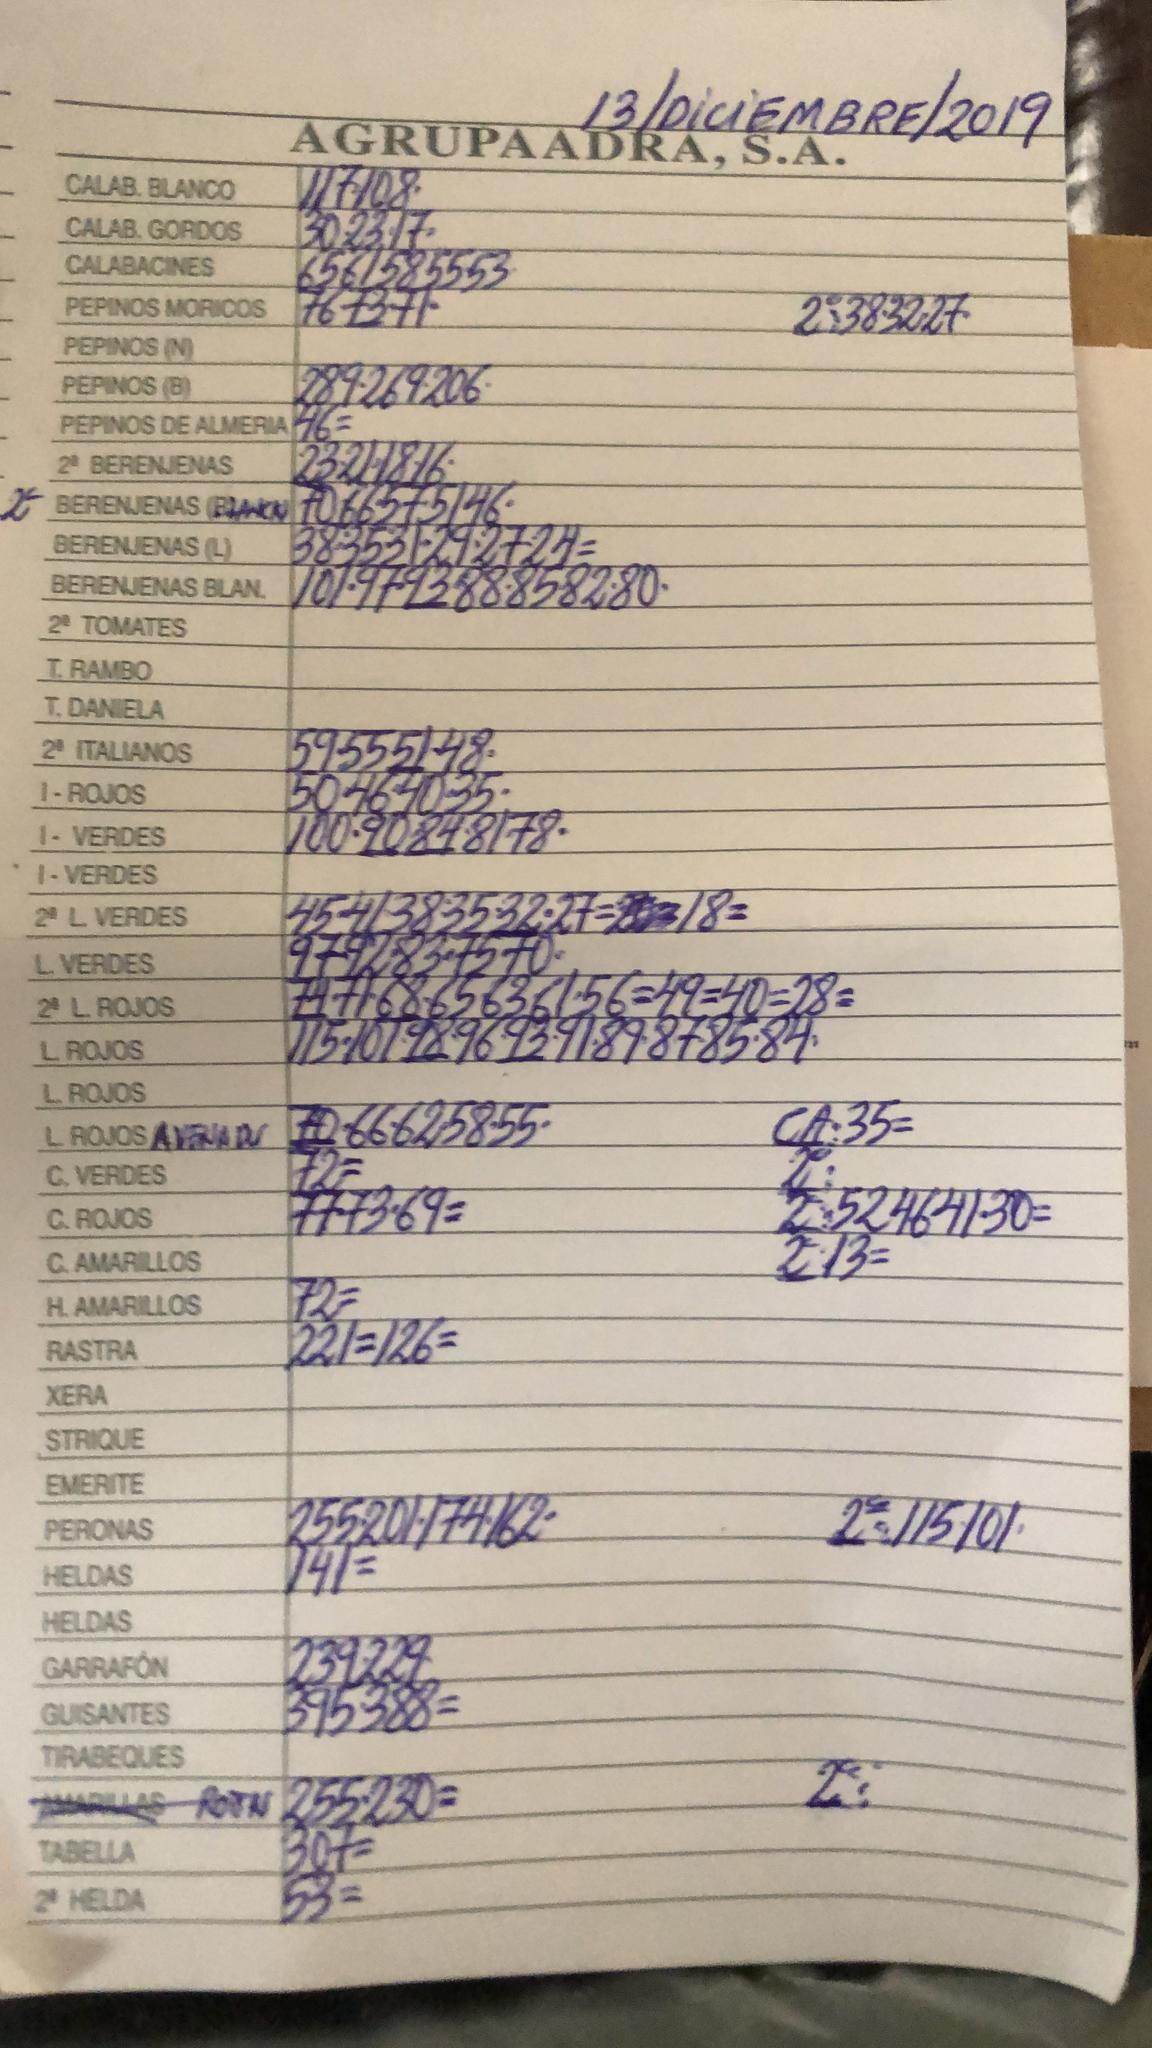 13/DiCiEMBRE/2019
AGRUPAADRA, S.A.
CALAB. BLANCO 117.108.
CALAB. GORDOS 30.23.17.
CALABACINES 65.61.58.55.53.
PEPINOS MORICOS 76.73.71. 2ª:38.32.27.
PEPINOS (N)
PEPINOS (B) 289.269.206.
PEPINOS DE ALMERIA 46=
2ª BERENJENAS 23.21.18.16.
2ª BERENJENAS 70.66.57.51.46.
BERENJENAS (L) 38.35.31.29.27.24=
BERENJENAS BLAN. 101.97.93.88.85.82.80.
2ª TOMATES
T. RAMBO
T. DANIELA
2ª ITALIANOS 59.55.51.48.
I - ROJOS 50.46.40.35.
I - VERDES 100.90.84.81.78.
I - VERDES
2ª L. VERDES 45.41.38.35.32.27= 18=
L. VERDES 97.92.83.75.70.
2ª L. ROJOS 74.71.68.65.63.61.56=49=40=28=
L. ROJOS 115.101.98.96.93.91.89.87.85.84.
L. ROJOS
L. ROJOS 70.66.62.58.55. CA:35=
C. VERDES 72= 2ª:
C. ROJOS 77.73.69= 2ª:52.46.41.30=
C. AMARILLOS 2ª:13=
H. AMARILLOS 72=
RASTRA 221=126=
XERA
STRIQUE
EMERITE
PERONAS 255.201.174.162. 2ª:115.101.
HELDAS 141=
HELDAS
GARRAFÓN 239.229.
GUISANTES 395.388=
TIRABEQUES
AMARILLAS 255.230= 2ª:
TABELLA 307=
2ª HELDA 53=